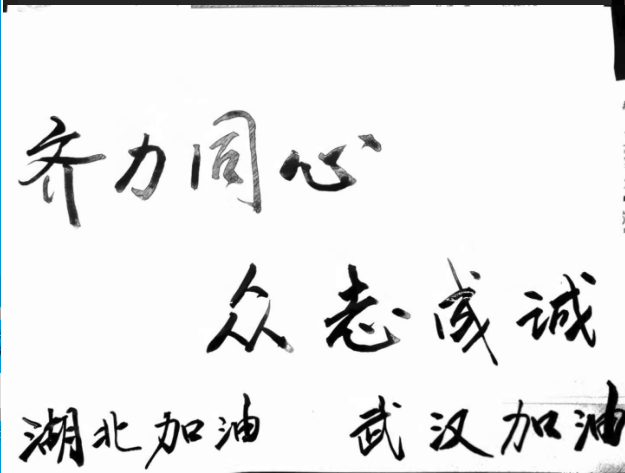 齐力同心
众志成诚
湖北加油 武汉加油